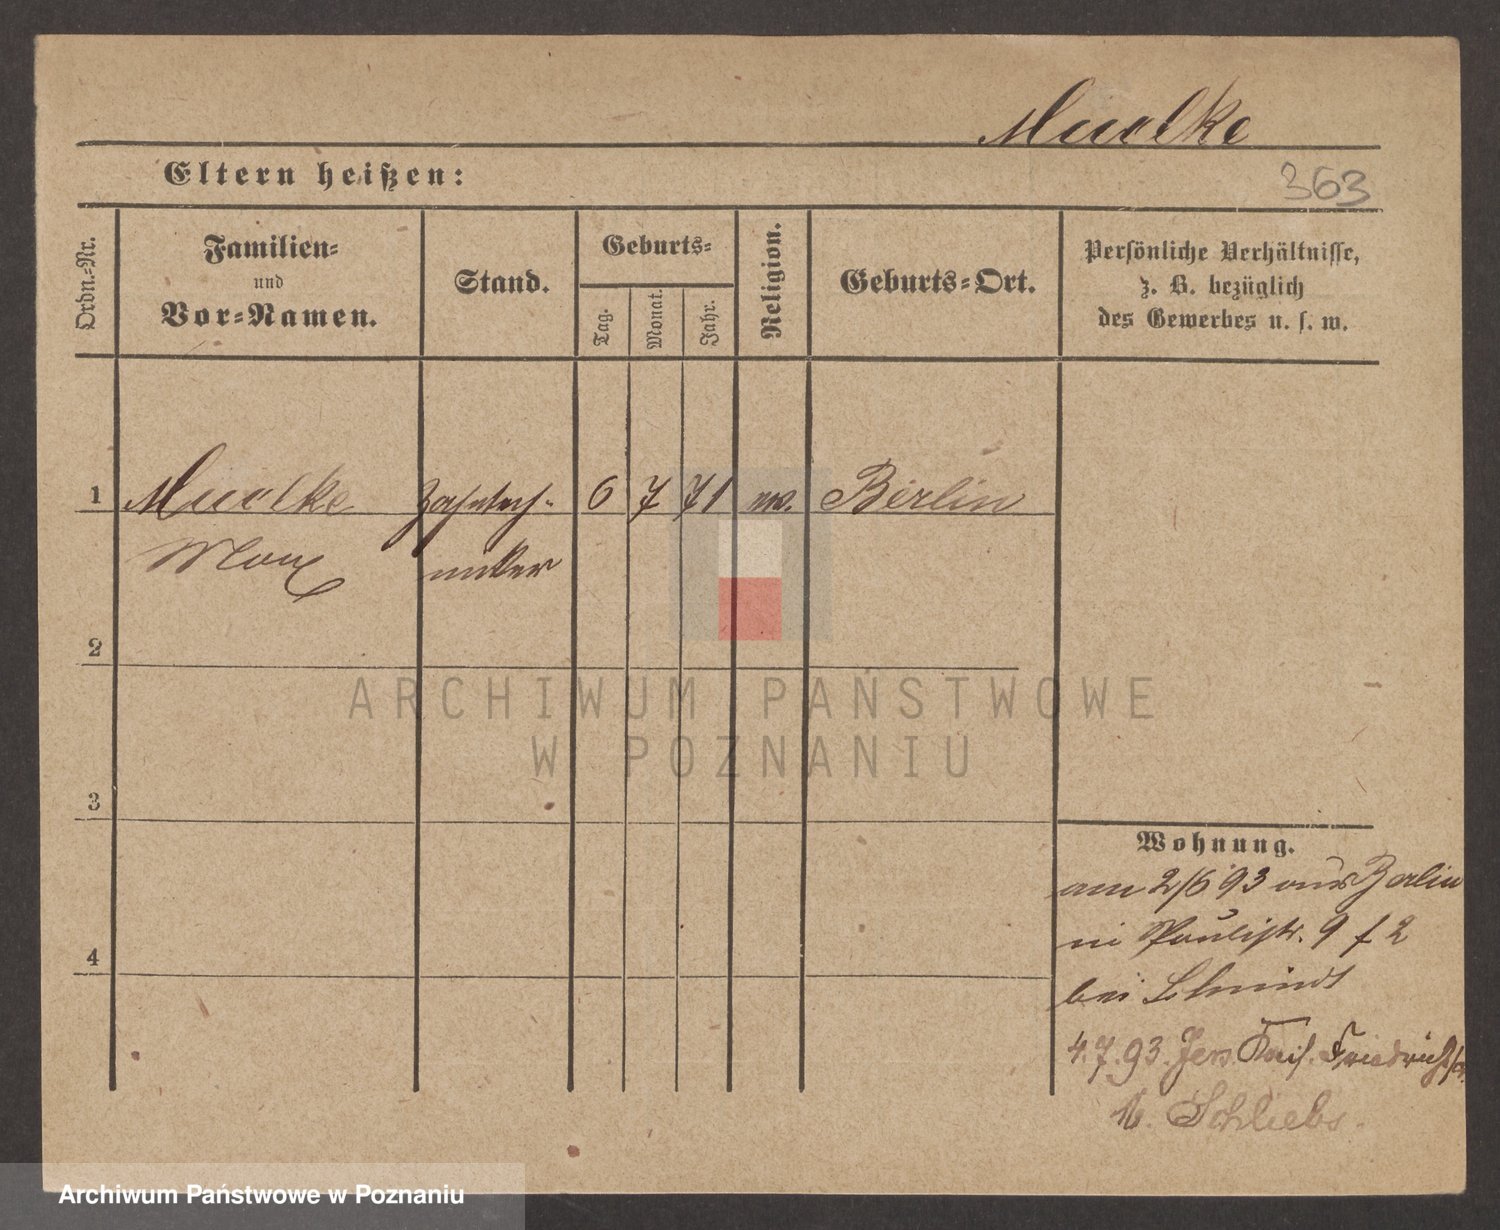 Mudlke
Eltern heißen:
363
Ordn.-Nr.
Familien-
und
Vor-Namen.
Stand.
Geburts-
Tag.
Monat.
Jahr.
Religion.
Geburts-Ort.
Persönliche Verhältnisse,
z. B. bezüglich
des Gewerbes u. s. w.
1 Mudlke Zahntech- 6 7 71 ev. Berlin
Max niker
2
3
4
Wohnung.
am 2/6 93 aus Berlin
in Paulistr. 9
bei Schmidt
4.7.93. Jers. Friedrichstr.
Schliebs.
ARCHIWUM PAŃSTWOWE
W POZNANIU
Archiwum Państwowe w Poznaniu